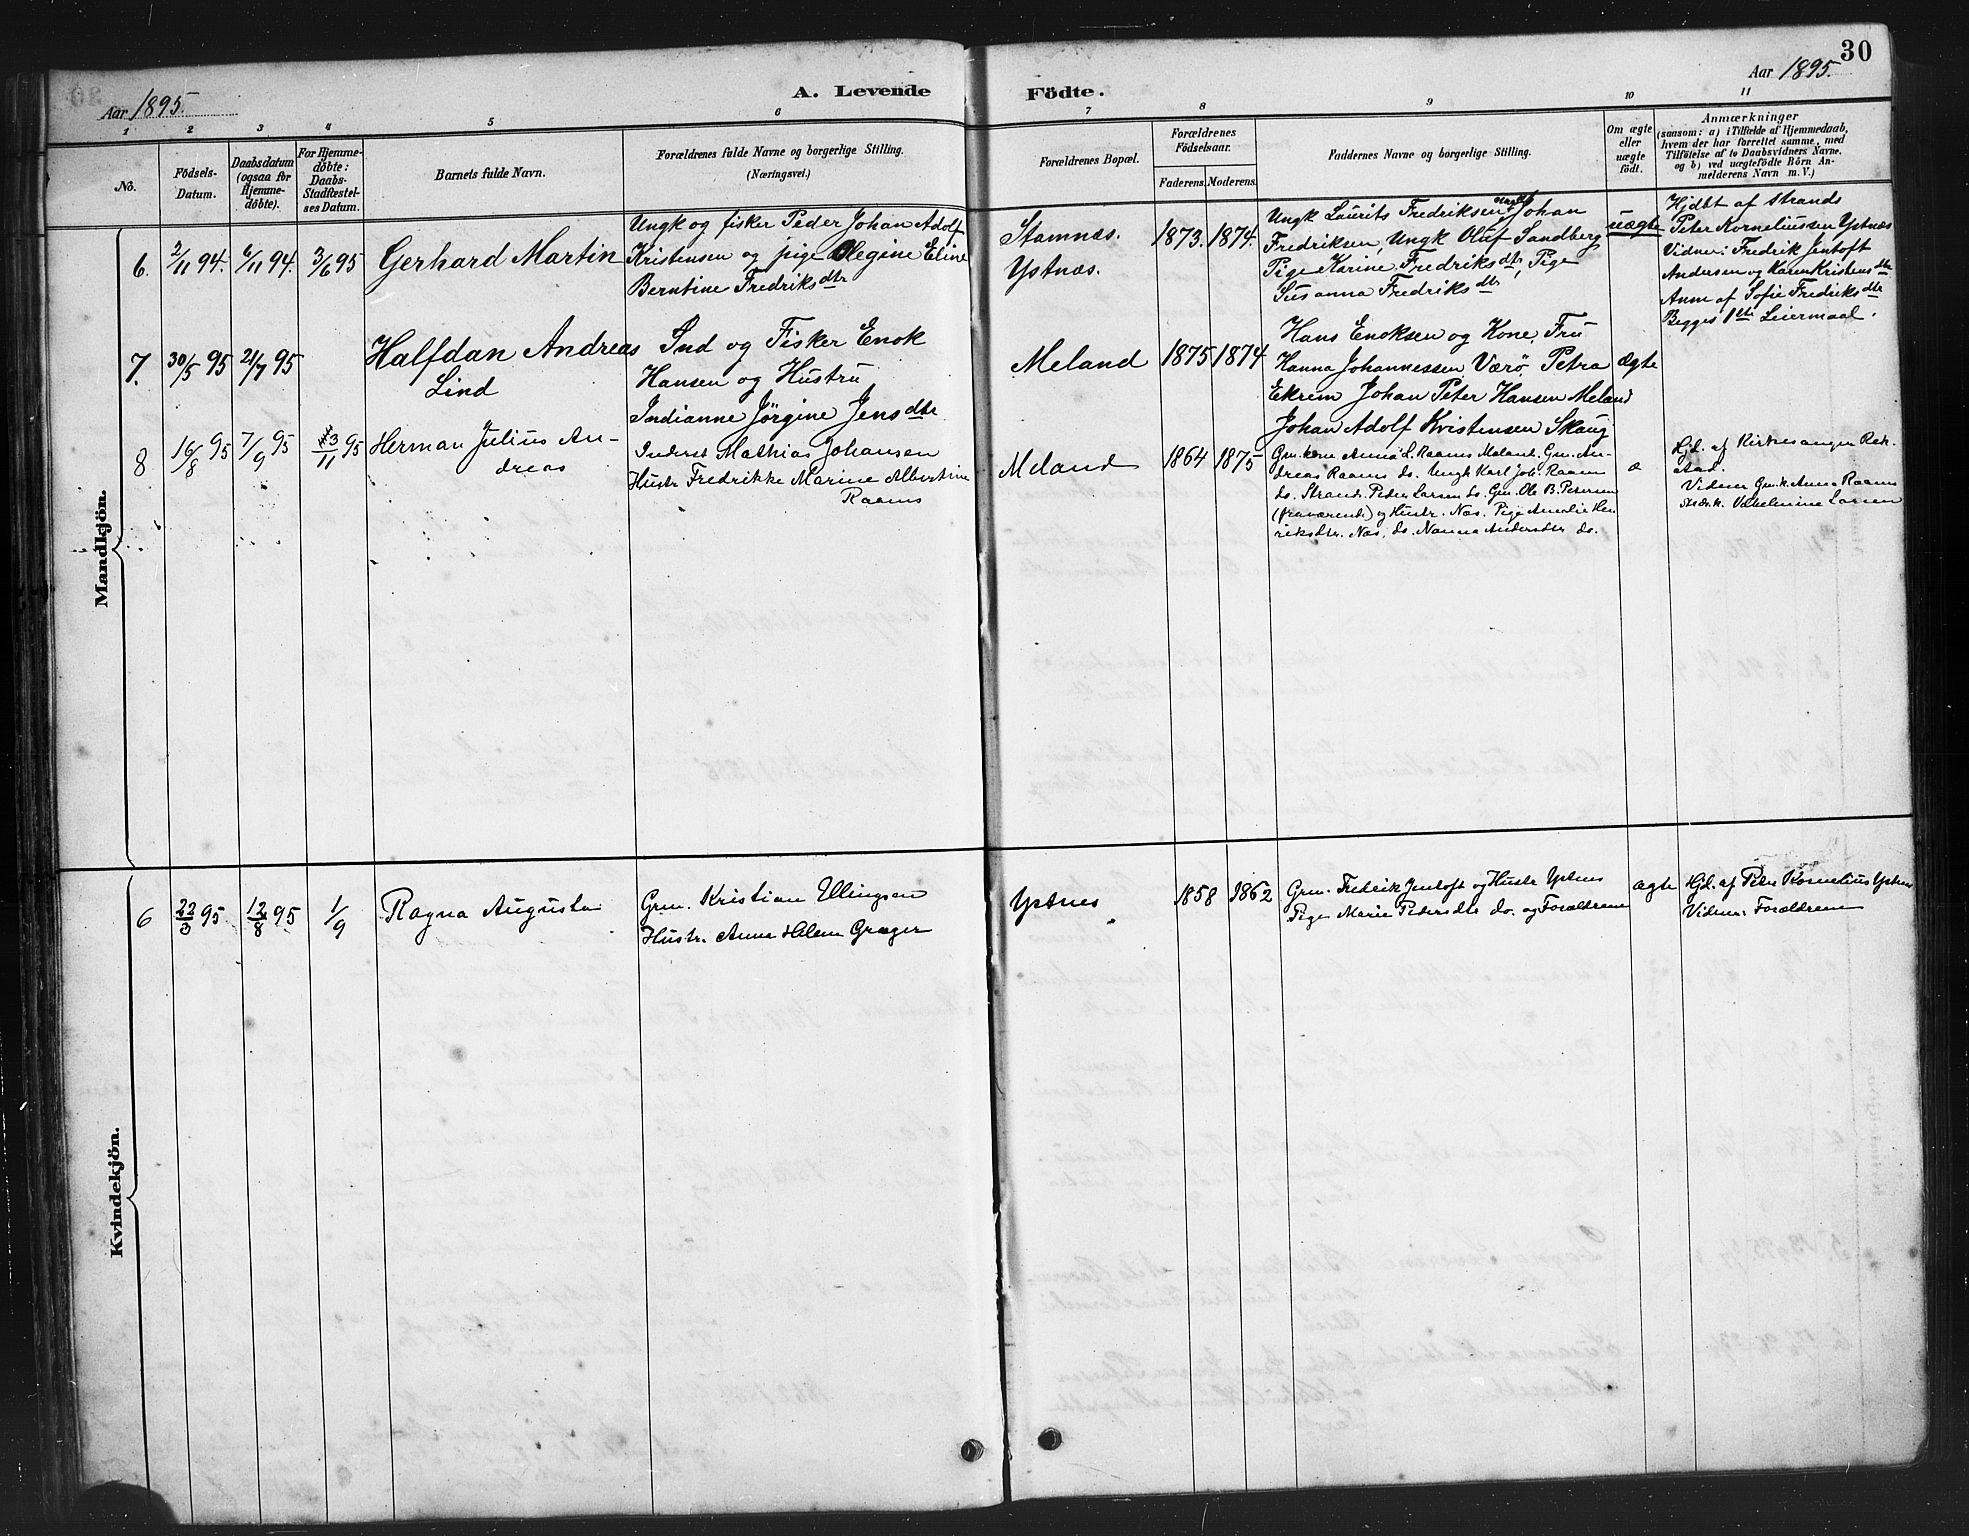 30
Aar 1895.
A. Levende Födte.
Aar 1895.
1 2 3 4 5 6 7 8 9 10 11
No.
Födsels-
Datum.
Daabsdatum
(ogsaa for
Hjemme-
döbte).
For Hjemme-
döbte:
Daabs-
Stadfæstel-
ses Datum.
Barnets fulde Navn.
Forældrenes fulde Navne og borgerlige Stilling.
(Næringsvei.)
Forældrenes Bopæl.
Forældrenes
Födselsaar.
Faderens. Moderens.
Faddernes Navne og borgerlige Stilling.
Om ægte
eller
uægte
födt.
Anmærkninger
(saasom: a) i Tilfælde af Hjemmedaab,
hvem der har forrettet samme, med
Tilföielse af to Daabsvidners Navne.
og b) ved uægtefödte Börn An-
melderens Navn m. V.)
Mandkjön.
6. 2/11 94. 6/11 94. 3/6 95
Gerhard Martin
Ungk og fisker Peder Johan Adolf
Kristensen og pige Olegine Eline
Berntine Fredriksdtr
Stamnæs.
Ystnæs.
1873. 1874.
Ungk Laurits Fredriksen, Ungk Johan
Fredriksen, Ungk Oluf Sandberg
Pige Karine Fredriksdtr, Pige
Susanna Fredriksdtr
uægte
Hjdbt af Strands
Peter Korneliussen Ystnæs
Vidner: Fredrik Jentoft
Andersen og Karen Kristensdtr
Anm af Sofie Fredriksdtr
Begges 1ste Leiermaal.
7. 30/5 95 21/7 95
Halfdan Andreas
Lind
Ind og Fisker Enok
Hansen og Hustru
Indianne Jørgine Jensdtr
Meland
1875 1874
Hans Enoksen og Kone, Fru
Hanna Johannessen Værø, Petra
Ekrem Johan Peter Hansen Meland
Johan Adolf Kristensen Skaug
ægte
8 16/8 95 7/9 95 3/11 95
Herman Julius An-
dreas
Inderst Mathias Johansen
Hustr Fredrikke Marine Albertine
Raanes
Meland
1864 1875
Gm. kone Anna L. Raanes Meland. Gm. An-
dreas Raanes do. Ungk Karl Joh. Raanes
do. Strand. Peder Larsen do. Gm. Ole B. Petersen
(fraværende) og Hustr. Næs. Pige Amalie Hen
riksdtr. Næs. do. Nanna Andersdtr do.
æ
Hjd. af Kirkesanger Rek-
stad.
Vidner Gm. k. Anna Raanes
Vilhelmine Larsen
Kvindekjön.
6 22/3 95 12/8 95 1/9
Ragna Augusta
Grm. Kristian Ellingsen
Hustr. Anne Helene Græger
Ystnes
1858 1862
Grm. Fredrik Jentoft og Hustr Ystnes
Pige Marie Pedersdtr do. og Forældrene
ægte
Hjd. af Peter Kornelius Ystnes
Vidner: Forældrene